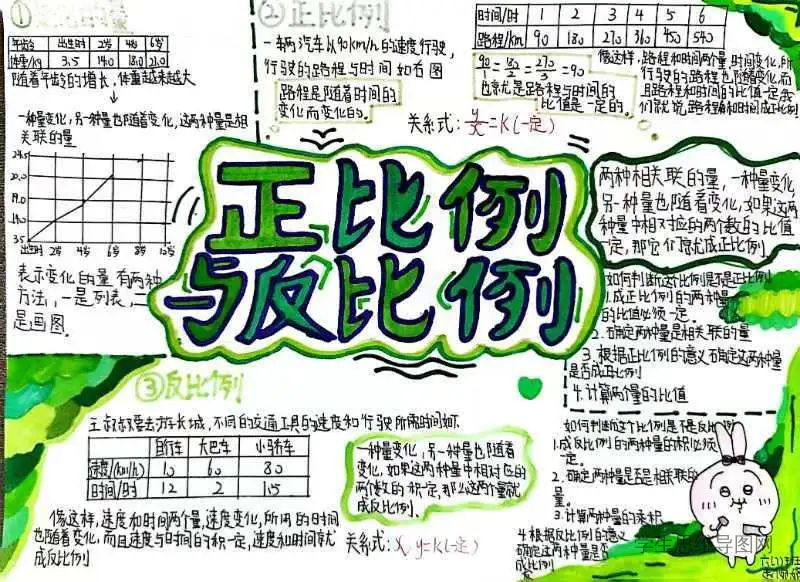 ①变化的量
年龄 出生时 2岁 4岁 6岁
体重/kg 3.5 14.0 18.0 21.0
随着年龄的增长，体重越来越大
一种量变化，另一种量也随着变化，这两种量是相
关联的量
24.5
3.5
出生时 2岁 4岁 6岁 8岁 10岁
表示变化的量有两种
方法，一是列表，二
是画图。
②正比例
一辆汽车以90km/h的速度行驶，
行驶的路程与时间如右图
路程是随着时间的
变化而变化的。
时间/时 1 2 3 4 5 6
路程/km 90 180 270 360 450 540
90/1=180/2=270/3=90
也就是路程与时间的
比值是一定的。
关系式：y/x=K(一定)
像这样，路程和时间两个量，时间变化，所
行驶的路程也随着变化，而
且路程和时间的比值一定，我
们就说，路程和时间成正比例
正比例
与反比例
两种相关联的量，一种量变化，
另一种量也随着变化，如果这两
种量中相对应的两个数的比值
一定，那它们就成正比例
如何判断这个比例是不是正比例
1.成正比例的两种量
的比值必须一定。
2.确定两种量是相关联的量
3.根据正比例的意义确定这两种量
是否成正比例
4.计算两个量的比值
③反比例
不同的交通工具的速度和行驶所需时间如下
自行车 大巴车 小轿车
速度/(km/h) 10 60 80
时间/时 12 2 1.5
像这样，速度和时间两个量，速度变化，所用的时间
也随着变化，而且速度与时间的积一定，速度和时间就
成反比例
一种量变化，另一种量也随着
变化，如果这两种量中相对应的
两个数的积一定，那么这两个量就
成反比例。
关系式：x y=K(一定)
如何判断这个比例是不是反比例
1.成反比例的两种量的积必须
一定。
2.确定两种量是否是相关联的
量。
3.计算两种量的乘积
4.根据反比例的意义
确定这两种量是否
成反比例